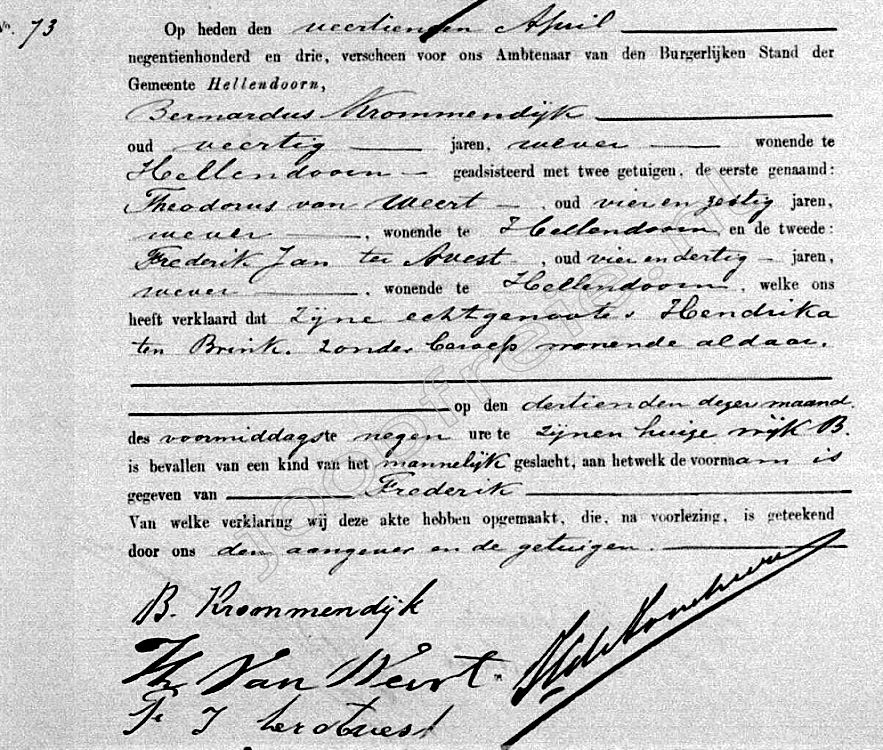 No. 73
Op heden den veertienden April
negentienhonderd en drie, verscheen voor ons Ambtenaar van den Burgerlijken Stand der
Gemeente Hellendoorn,
Bernardus Krommendijk
oud veertig jaren, wever wonende te
Hellendoorn geadsisteerd met twee getuigen, de eerste genaamd:
Theodorus van Weert, oud vier en zestig jaren,
wever, wonende te Hellendoorn en de tweede:
Frederik Jan ter Avest, oud vier en dertig jaren,
wever, wonende te Hellendoorn, welke ons
heeft verklaard dat zijne echtgenoote Hendrika
ten Brink. zonder beroep wonende aldaar.
op den dertienden dezer maand
des voormiddags te negen ure te zijnen huize wijk B.
is bevallen van een kind van het mannelijk geslacht, aan hetwelk de voornaam is
gegeven van Frederik
Van welke verklaring wij deze akte hebben opgemaakt, die, na voorlezing, is geteekend
door ons den aangever en de getuigen.
B. Krommendijk
Th Van Weert.
F J ter Avest
joopfreie.nl